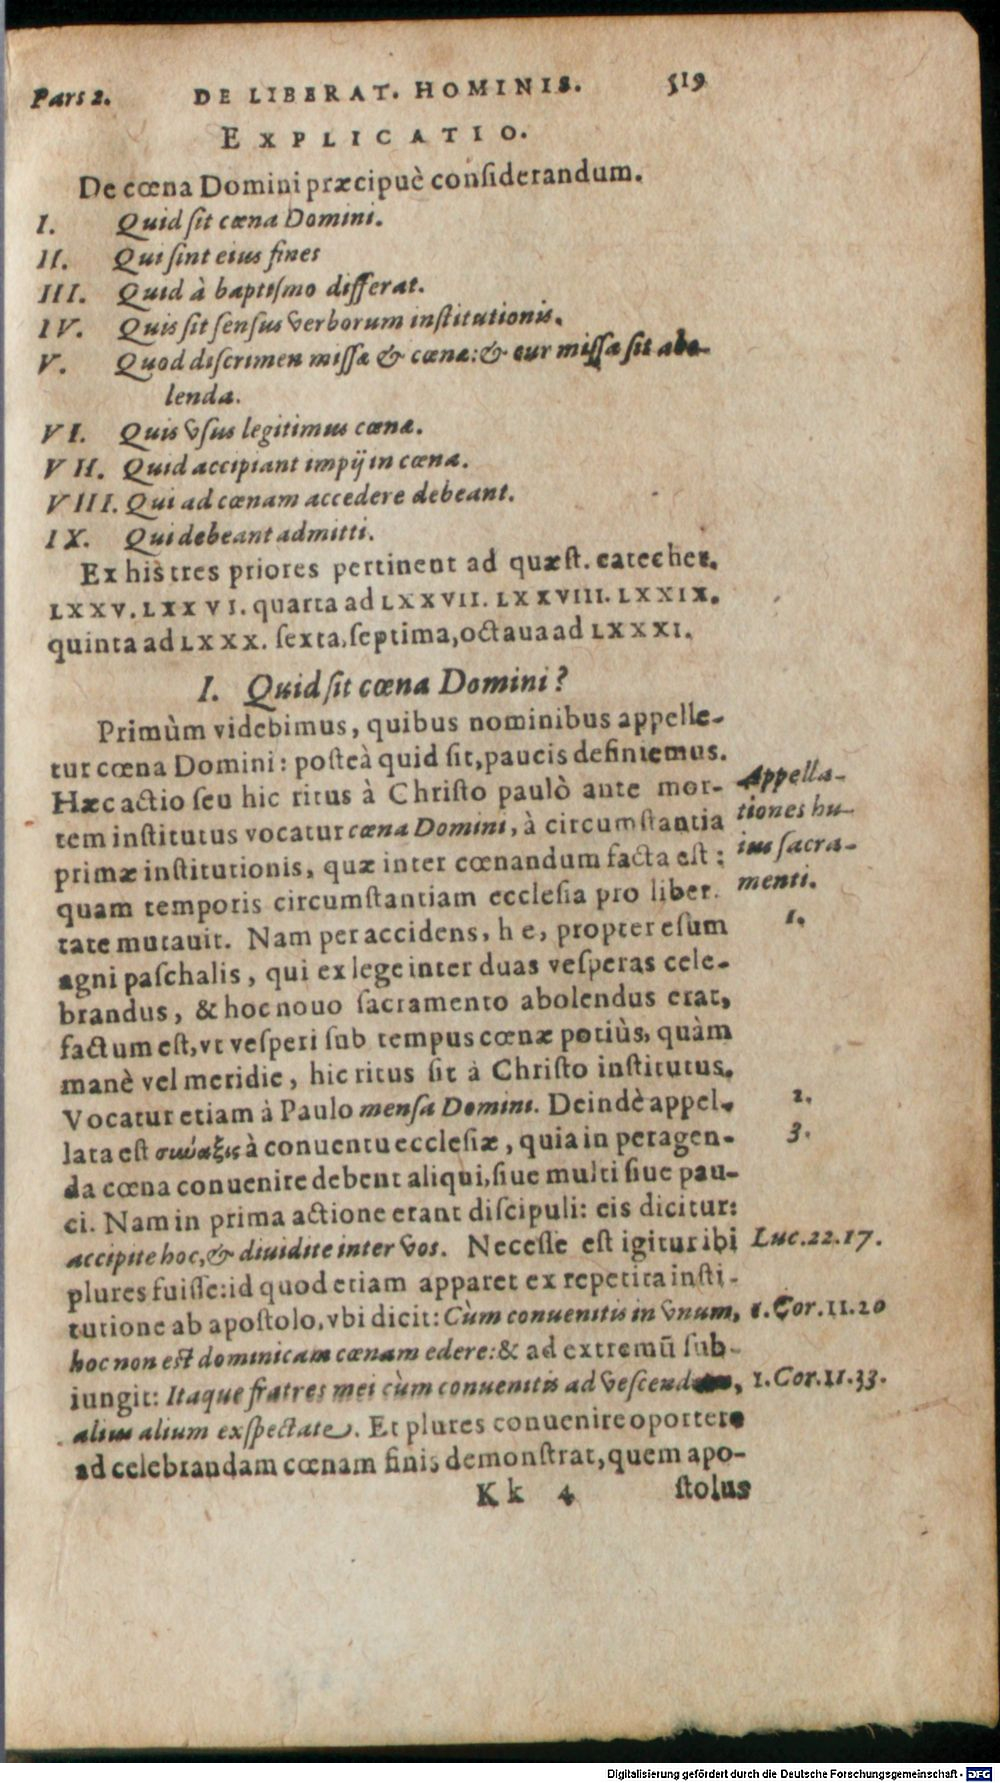 Pars 2. DE LIBERAT. HOMINIS. 519
EXPLICATIO.
De cœna Domini præcipuè considerandum.
I. Quid sit cœna Domini.
II. Qui sint eius fines
III. Quid à baptismo differat.
IV. Quis sit sensus verborum institutionis.
V. Quod discrimen missæ & cœnæ: & cur missa sit abo-
lenda.
VI. Quis vsus legitimus cœnæ.
VII. Quid accipiant impij in cœna.
VIII. Qui ad cœnam accedere debeant.
IX. Qui debeant admitti.
Ex his tres priores pertinent ad quæst. catechet.
LXXV. LXXVI. quarta ad LXXVII. LXXVIII. LXXIX.
quinta ad LXXX. sexta, septima, octaua ad LXXXI.
I. Quid sit cœna Domini?
Primùm videbimus, quibus nominibus appelle-
tur cœna Domini: posteà quid sit, paucis definiemus.
Hæc actio seu hic ritus à Christo paulò ante mor-
tem institutus vocatur cœna Domini, à circumstantia
primæ institutionis, quæ inter cœnandum facta est:
quam temporis circumstantiam ecclesia pro liber-
tate mutauit. Nam per accidens, h e, propter esum
agni paschalis, qui ex lege inter duas vesperas cele-
brandus, & hoc nouo sacramento abolendus erat,
factum est, vt vesperi sub tempus cœnæ potiùs, quàm
manè vel meridie, hic ritus sit à Christo institutus.
Vocatur etiam à Paulo mensa Domini. Deindè appel-
lata est σύναξις à conuentu ecclesiæ, quia in peragen-
da cœna conuenire debent aliqui, siue multi siue pau-
ci. Nam in prima actione erant discipuli: eis dicitur:
accipite hoc, & diuidite inter vos. Necesse est igitur ibi
plures fuisse: id quod etiam apparet ex repetita insti-
tutione ab apostolo, vbi dicit: Cùm conuenitis in vnum,
hoc non est dominicam cœnam edere: & ad extremū sub-
iungit: Itaque fratres mei cùm conuenitis ad vescendum,
alius alium exspectate. Et plures conuenire oportere
ad celebrandam cœnam finis demonstrat, quem apo-
Kk 4 stolus
Appella-
tiones hu-
ius sacra-
menti.
1.
2.
3.
Luc.22.17.
1.Cor.11.20
1.Cor.11.33.
Digitalisierung gefördert durch die Deutsche Forschungsgemeinschaft - DFG